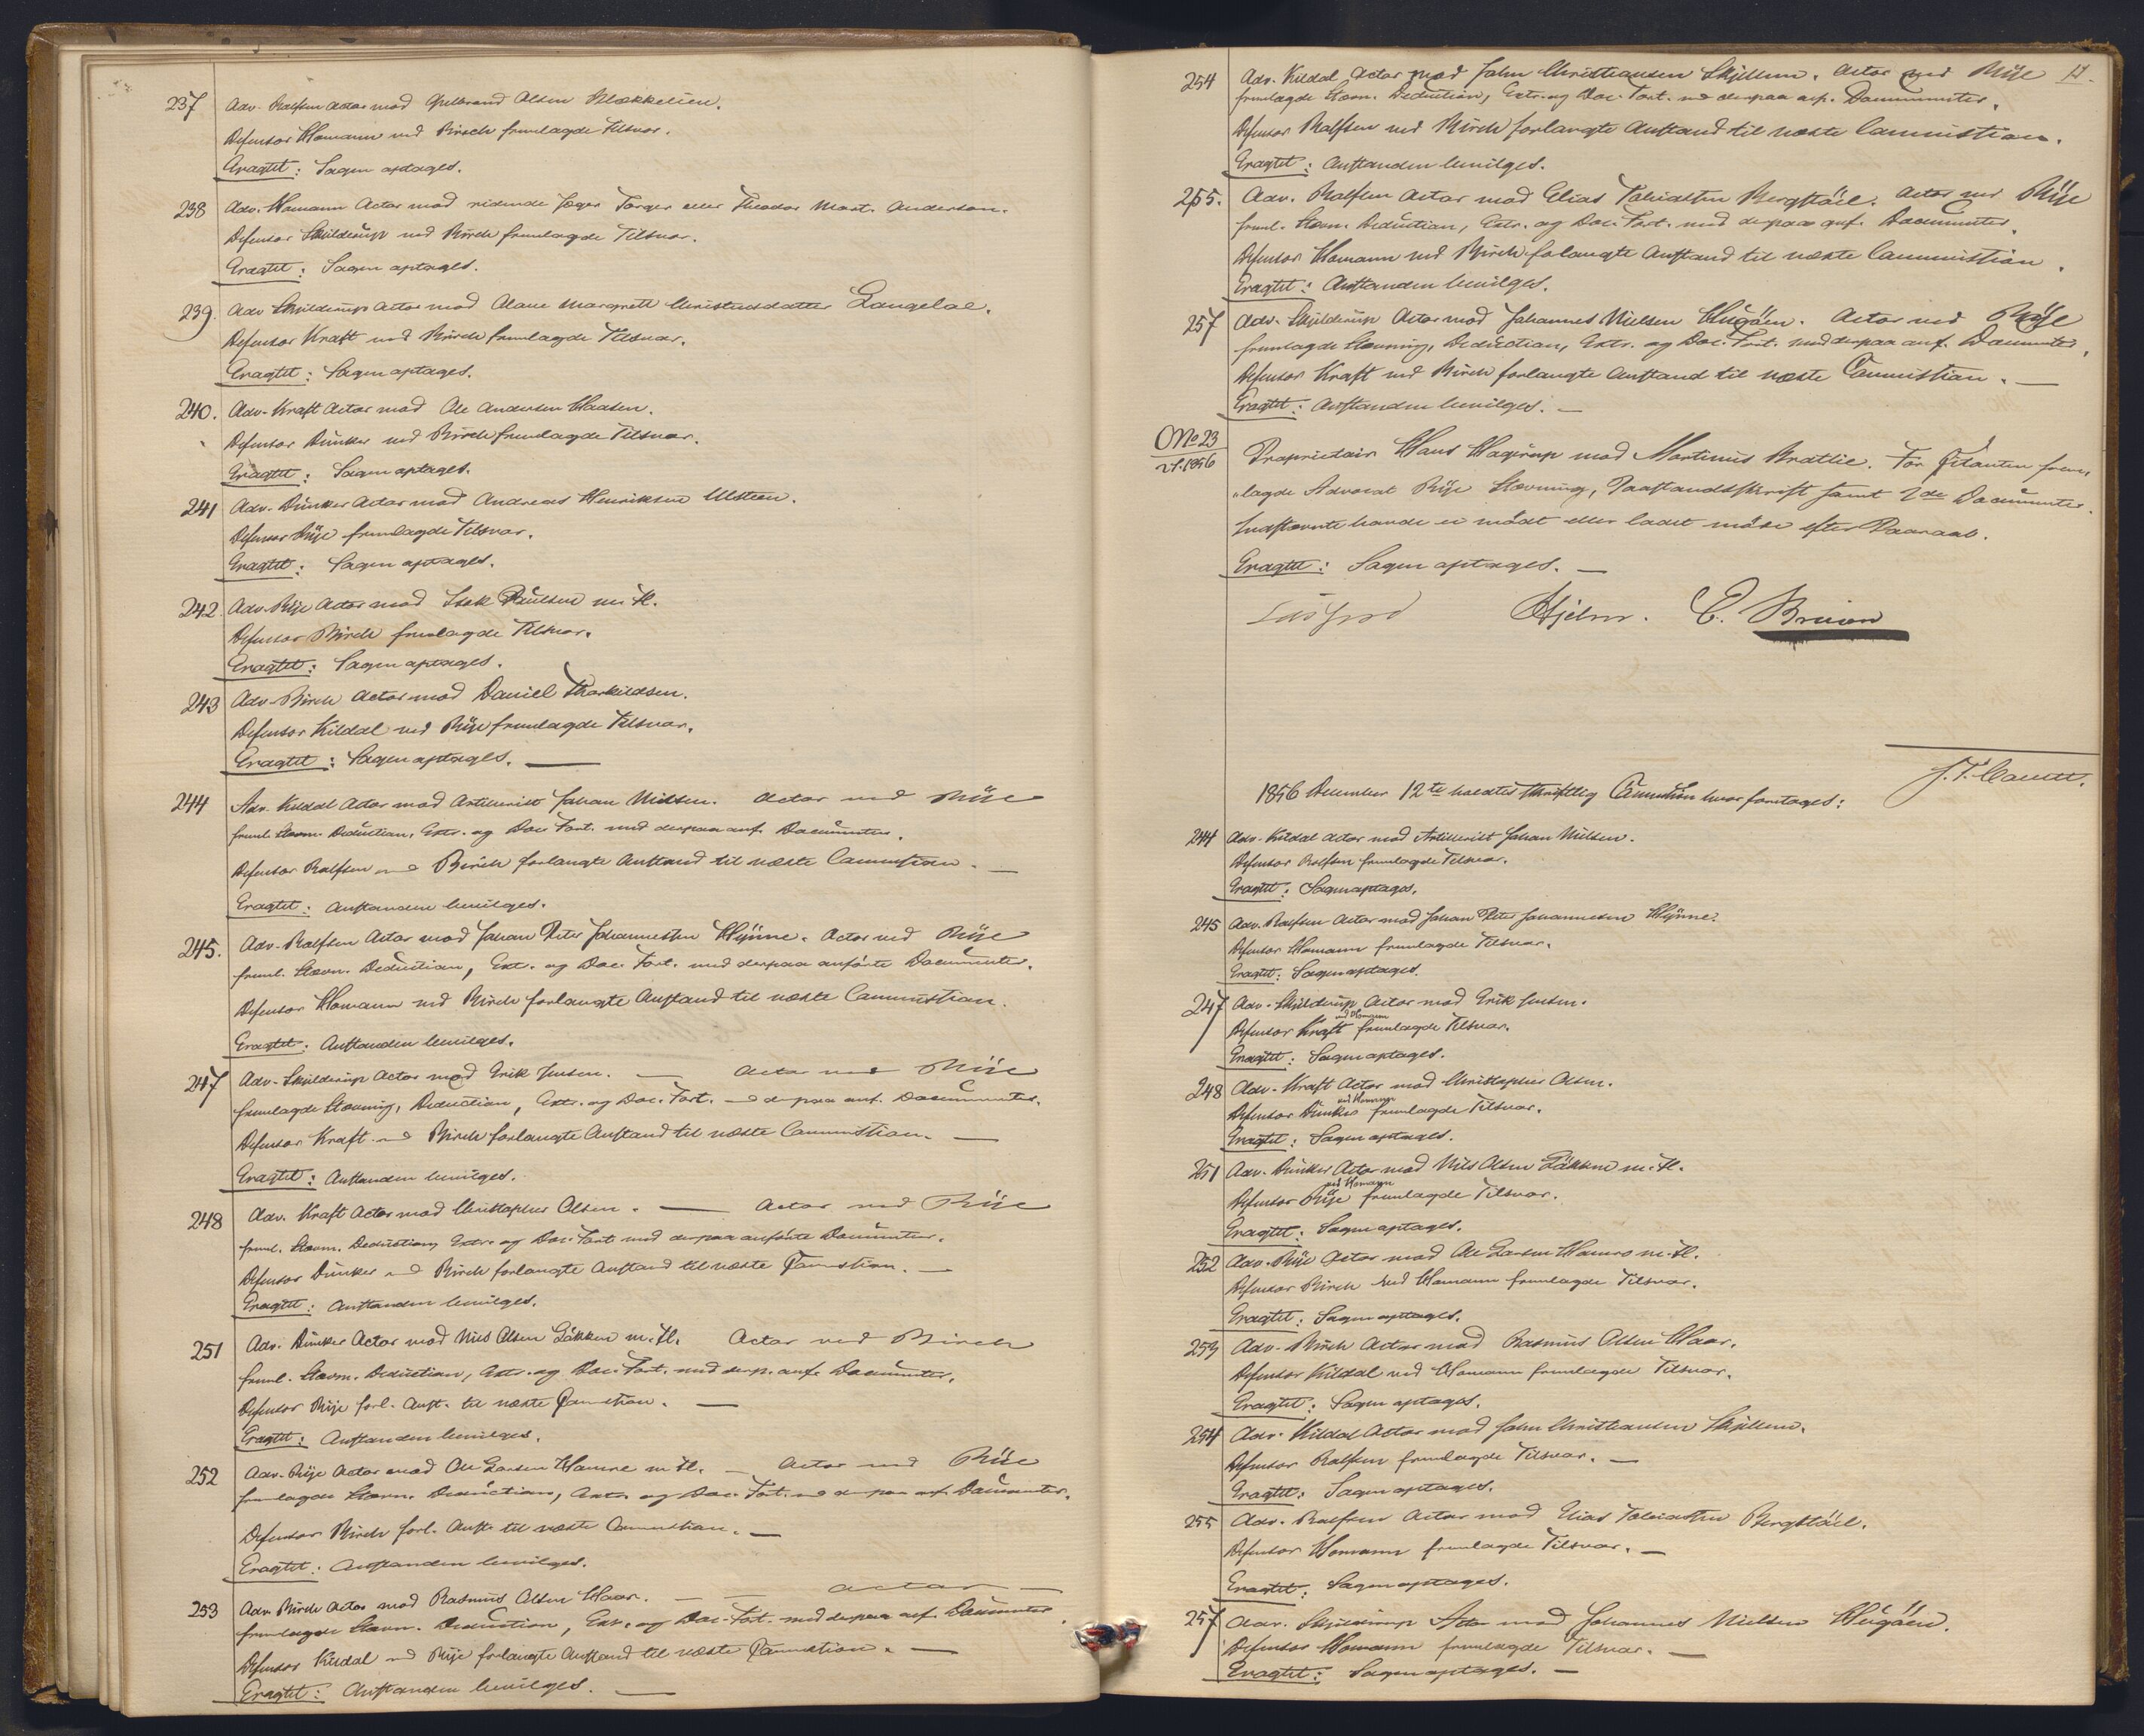 237 Adv. Ralfsen Actor mod Gulbrand Olsen Blækkelien.
Defensor Homann ved Birch fremlagde Tilsvar.
Eragtet: Sagen optages.
238 Adv. Homann Actor mod ridende Jæger Torger eller Theodor Mort. Anderson.
Defensor Skjilderup ved Birch fremlagde Tilsvar.
Eragtet: Sagen optages.
239. Adv Skjilderup Actor mod Olave Margrett Christiansdatter Langeloe.
Defensor Kraft ved Birch fremlagde Tilsvar.
Eragtet: Sagen optages.
240. Adv. Kraft Actor mod Ole Andersen Haasen.
Defensor Dunker ved Birch fremlagde Tilsvar.
Eragtet: Sagen optages.
241 Adv. Dunker Actor mod Andreas Henriksen Ulsteen.
Defensor Rije fremlagde Tilsvar.
Eragtet: Sagen optages.
242. Adv. Rije Actor mod Isak Paulsen m. fl.
Defensor Birch fremlagde Tilsvar.
Eragtet: Sagen optages.
243 Adv. Birch Actor mod Daniel Thorkildsen.
Defensor Kildal ved Rije fremlagde Tilsvar.
Eragtet: Sagen optages.
244 Adv. Kildal Actor mod Artillerist Johan Nielsen. Actor ved Rije
freml. Stævn. Deduction, Extr. og Doc. Fort. med derpaa anf. Documenter.
Defensor Ralfsen ved Birch forlangte Anstand til næste Cammission.
Eragtet: Anstanden bevilges.
245. Adv. Ralfsen Actor mod Johan Peter Johannessen Hlynne. Actor ved Rije
freml. Stævn. Deduction, Ext. og Doc. Fort. med derpaa anførte Documenter.
Defensor Homann ved Birch forlangte Anstand til næste Cammission.
Eragtet: Anstanden bevilges.
247 Adv. Skjilderup Actor mod Erik Jensen. Actor ved Rije
fremlagde Stævning, Deduction, Extr. og Doc. Fort. med derpaa anf. Documenter.
Defensor Kraft ved Birch forlangte Anstand til næste Cammission.
Eragtet: Anstanden bevilges.
248 Adv. Kraft Actor mod Christopher Olsen. Actor ved Rije
freml. Stævn. Deduction, Extr. og Doc. Fort. med derpaa anførte Documenter.
Defensor Dunker ved Birch forlangte Anstand til næste Cammission.
Eragtet: Anstanden bevilges.
251 Adv. Dunker Actor mod Nils Olsen Løkken m. fl. Actor ved Birch
freml. Stævn. Deduction, Extr. og Doc. Fort. med derp. anf. Documenter.
Defensor Rije forl. Anst. til næste Cammission.
Eragtet: Anstanden bevilges.
252 Adv. Rije Actor mod Ole Larsen Hamre m. fl. Actor ved Rije
fremlagde Stævn. Deduction, Extr. og Doc. Fort. med derpaa anf. Documenter.
Defensor Birch forl. Anst. til næste Cammission.
Eragtet: Anstanden bevilges.
253 Adv. Birch Actor mod Rasmus Olsen Haar. Actor
fremlagde Stævn. Deduction, Extr. og Doc. Fort. med derpaa anf. Documenter.
Defensor Kildal ved Rije forlangte Anstand til næste Cammission.
Eragtet: Anstanden bevilges.
12.
254 Adv. Kildal Actor mod John Christiansen Skjellum. Actor ved Rije
fremlagde Stævn. Deduction, Extr. og Doc. Fort. med derpaa anf. Documenter.
Defensor Ralfsen ved Birch forlangte Anstand til næste Cammission.
Eragtet: Anstanden bevilges.
255. Adv. Ralfsen Actor mod Elias Tobiassen Bergstøel. Actor ved Rije
freml. Stævn. Deduction, Extr. og Doc. Fort. med derpaa anf. Documenter.
Defensor Homann ved Birch folangte Anstand til næste Cammission.
Eragtet: Anstanden bevilges.
257 Adv. Skjilderup Actor mod Johannes Nielsen Hugøen. Actor ved Rije
fremlagde Stævning, Deduction, Extr. og Doc. Fort. med derpaa anf. Documenter.
Defensor Kraft ved Birch forlangte Anstand til næste Cammission.
Eragtet: Anstanden bevilges.
No 23
2 S. 1856 Proprietair Hans Hagerup mod Martinus Bratlie. For Citanten frem-
lagde Advocat Rije Stævning, Paastandsskrift samt 2de Documenter.
Indstævnte havde ei mødt eller ladet møde efter Paaraab.
Eragtet: Sagen optages.
Hjelm. C. Bruun
1856 December 12te holdtes skriftlig Cammission hvor foretages:
244 Adv. Kildal Actor mod Artillerist Johan Nielsen.
Defensor Ralfsen fremlagde Tilsvar.
Eragtet: Sagen optages.
245 Adv. Ralfsen Actor mod Johan Peter Johannesen Hlynne.
Defensor Homann fremlagde Tilsvar.
Eragtet: Sagen optages.
247 Adv. Skjilderup Actor mod Erik Jensen.
Defensor Kraft ved Homann fremlagde Tilsvar.
Eragtet: Sagen optages.
248 Adv. Kraft Actor mod Christopher Olsen.
Defensor Dunker ved Homann fremlagde Tilsvar.
Eragtet: Sagen optages.
251 Adv. Dunker Actor mod Nils Olsen Løkken m. fl.
Defensor Rije ved Homann fremlagde Tilsvar.
Eragtet: Sagen optages.
252 Adv. Rije Actor mod Ole Larsen Hamre m. fl.
Defensor Birch ved Homann fremlagde Tilsvar.
Eragtet: Sagen optages.
253 Adv. Birch Actor mod Rasmus Olsen Haar.
Defensor Kildal ved Homann fremlagde Tilsvar.
Eragtet: Sagen optages.
254 Adv. Kildal Actor mod John Christiansen Skjellum.
Defensor Ralfsen fremlagde Tilsvar.
Eragtet: Sagen optages.
255 Adv. Ralfsen Actor mod Elias Tobiassen Bergstøel.
Defensor Homann fremlagde Tilsvar.
Eragtet: Sagen optages.
257 Adv. Skjilderup Actor mod Johannes Nielsen Hugøen.
Defensor Homann fremlagde Tilsvar.
Eragtet: Sagen optages.